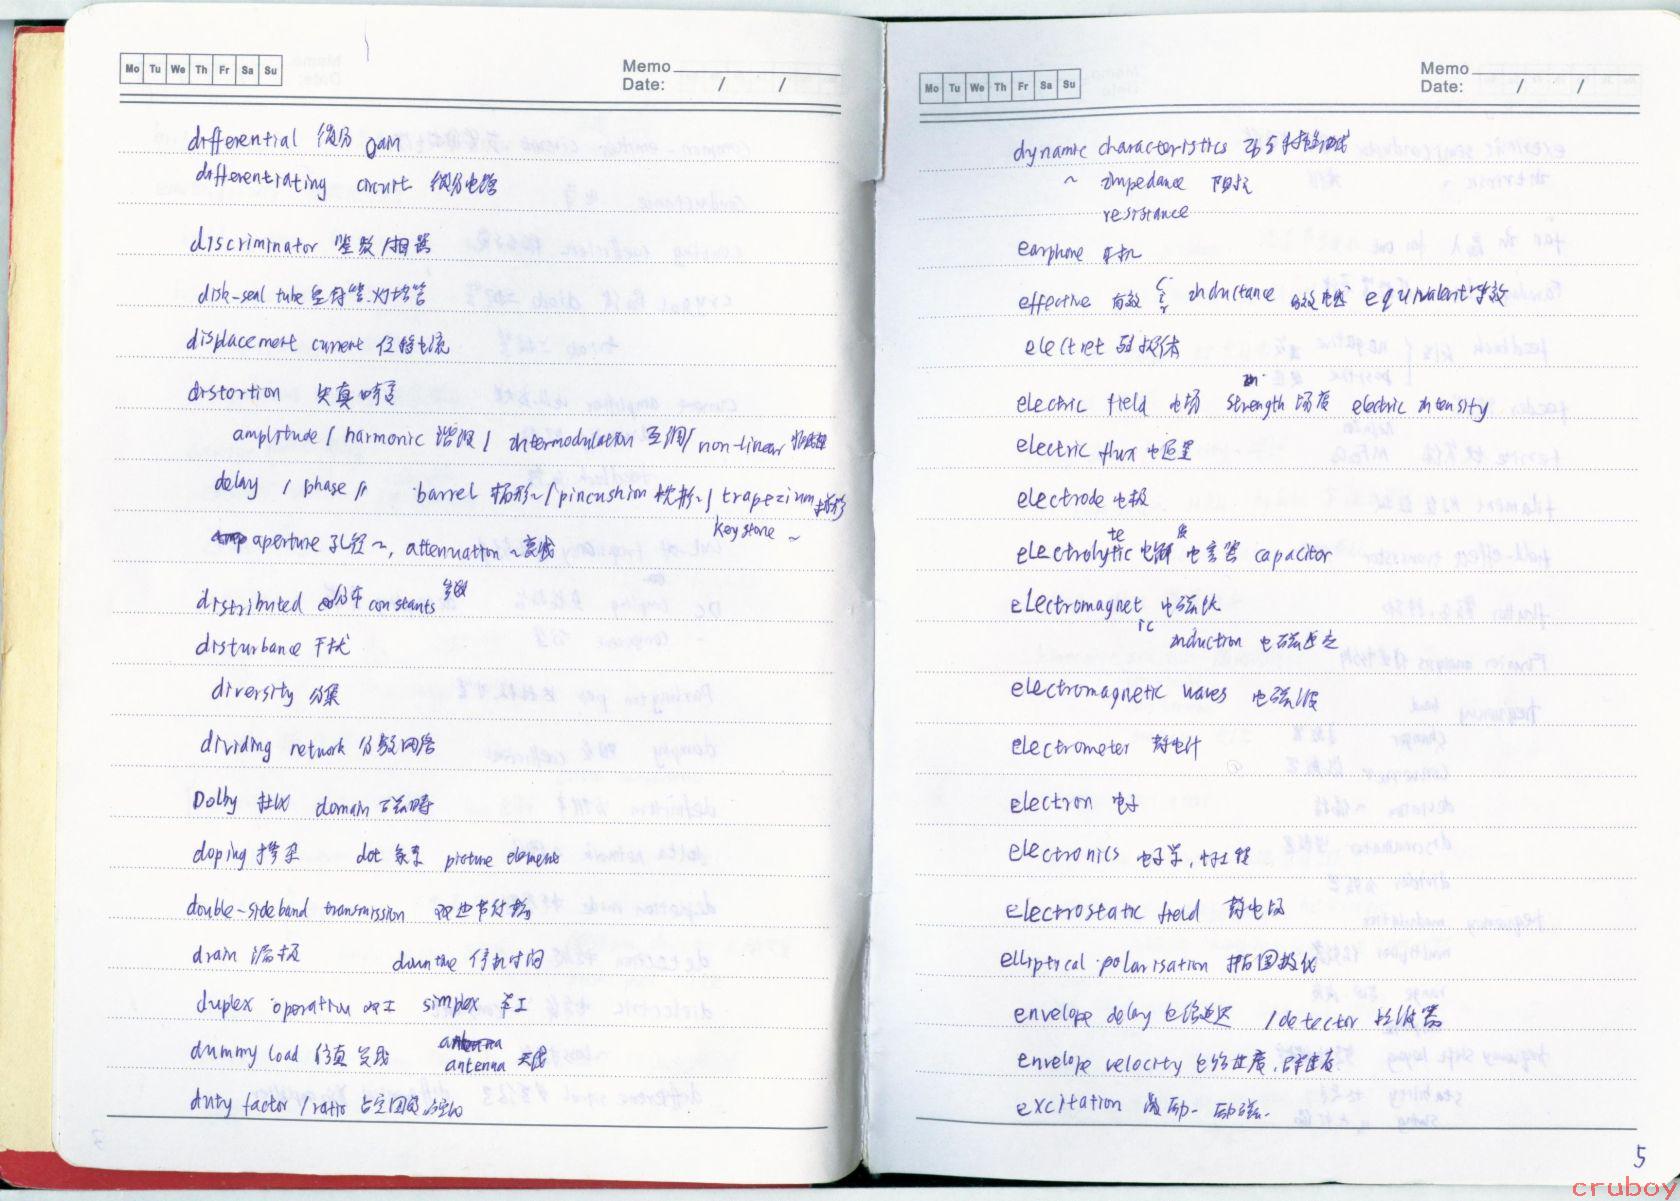 Mo Tu We Th Fr Sa Su
Memo
Date: / /
differential 微分 gain
differentiating circuit 微分电路
discriminator 鉴频/相器
disk-seal tube 灯塔管
displacement current 位移电流
distortion 失真
amplitude / harmonic 谐波 / intermodulation 互调 / non-linear
delay / phase // barrel 桶形~ / pincushion 枕形~ / trapezium 梯形
keystone ~
aperture 孔径~, attenuation ~衰减
distributed 分布 constants 参数
disturbance 干扰
diversity 分集
dividing network 分频网络
Dolby 杜比 domain 磁畴
doping 掺杂 dot picture element
double-sideband transmission 双边带传输
drain 漏极 downtime 停机时间
duplex operation 双工 simplex 单工
dummy load 仿真负载
antenna 天线
duty factor / ratio 占空因数 占空比
Mo Tu We Th Fr Sa Su
Memo
Date: / /
dynamic characteristics 动态特性曲线
~ impedance 阻抗
resistance
earphone 耳机
effective 有效 inductance 有效电感 equivalent 等效
electret 驻极体
electric field 电场 strength 场度 electric intensity
electric flux 电通量
electrode 电极
electrolytic 电解 电容器 capacitor
electromagnet 电磁铁
ic induction 电磁感应
electromagnetic waves 电磁波
electrometer 静电计
electron 电子
electronics 电子学, 电子工程
electrostatic field 静电场
elliptical polarisation 椭圆极化
envelope delay 包络延迟 / detector 检波器
envelope velocity 包络速度, 群速度
excitation 激励- 励磁.
5
cruboy